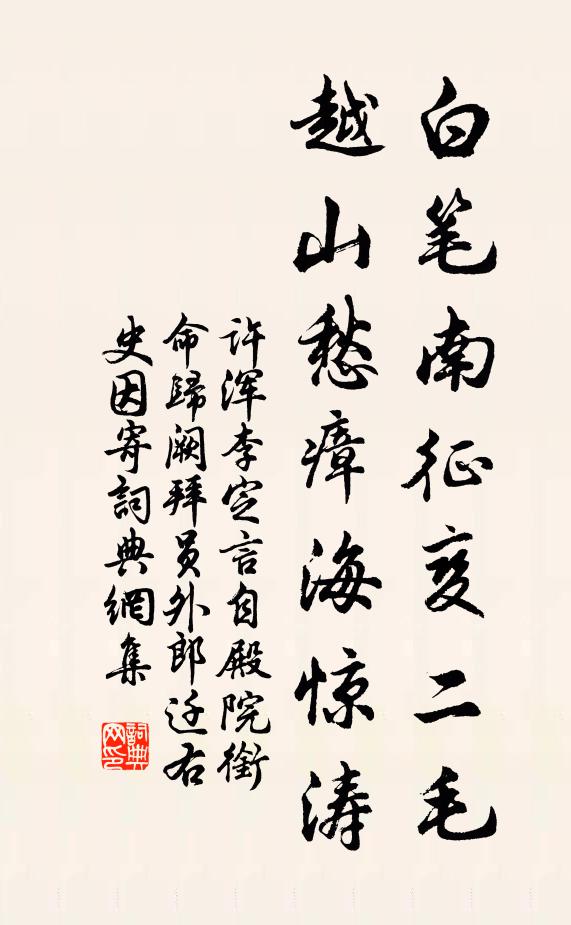 白笔南征变二毛
越山愁瘴海惊涛
许浑李定言自殿院衔
命歸阙拜员外郎迁右
史因寄詞典網集
詞典网印